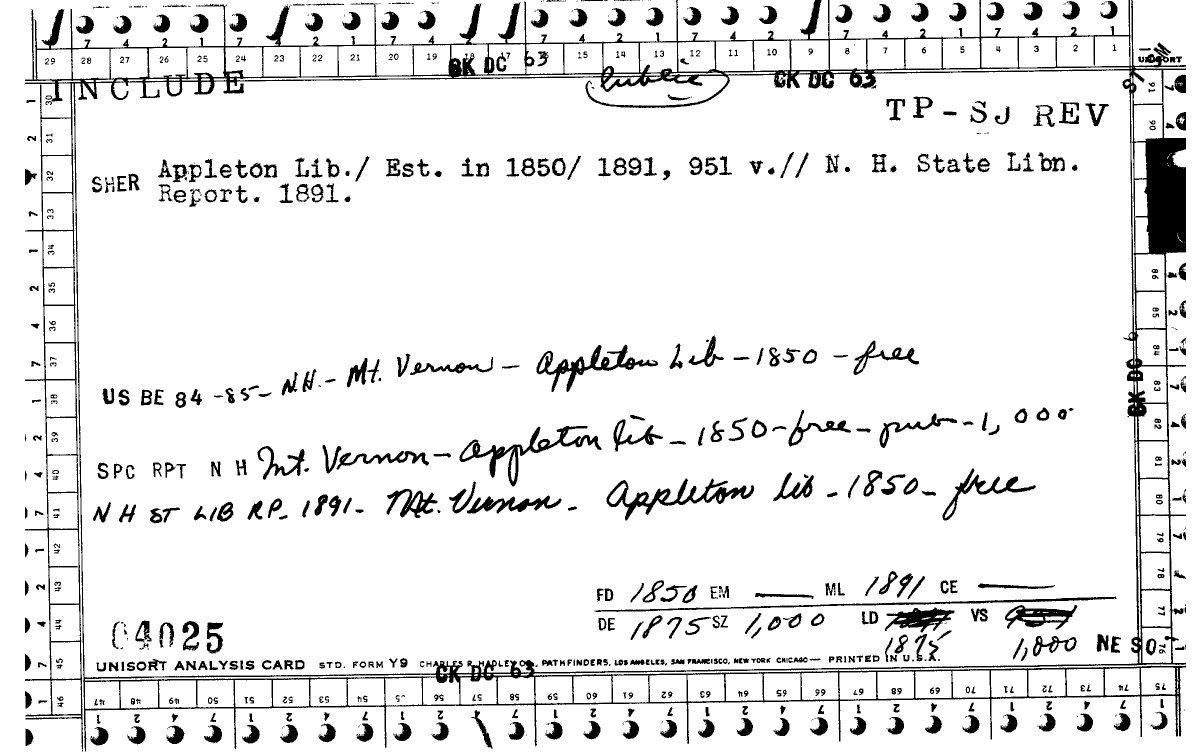 7 4 2 1 7 4 2 1 7 4 2 1 7 4 2 1 7 4 2 1 7 4 2 1 7 4 2 1
29 28 27 26 25 24 23 22 21 20 19 18 17 15 14 13 12 11 10 9 8 7 6 5 4 3 2 1
CK DC 63
CK DC 63
INCLUDE
Public
TP-SJ REV
SHER Appleton Lib./ Est. in 1850/ 1891, 951 v.// N. H. State Libn.
Report. 1891.
US BE 84-85- N.H.- Mt. Vernon - Appleton Lib - 1850 - free
SPC RPT N H Mt. Vernon - Appleton lib - 1850 - free - pub - 1,000
N H ST LIB RP- 1891- Mt. Vernon - Appleton lib - 1850 - free
FD 1850 EM — ML 1891 CE —
DE 1875 SZ 1,000 LD VS
1875 1,000 NE SO
04025
UNISORT ANALYSIS CARD STD. FORM Y9 CHARLES R. HADLEY CO., PATHFINDERS, LOS ANGELES, SAN FRANCISCO, NEW YORK CHICAGO — PRINTED IN U.S.A.
CK DC 63
47 48 49 50 51 52 53 54 55 56 57 58 59 60 61 62 63 64 65 66 67 68 69 70 71 72 73 74 75